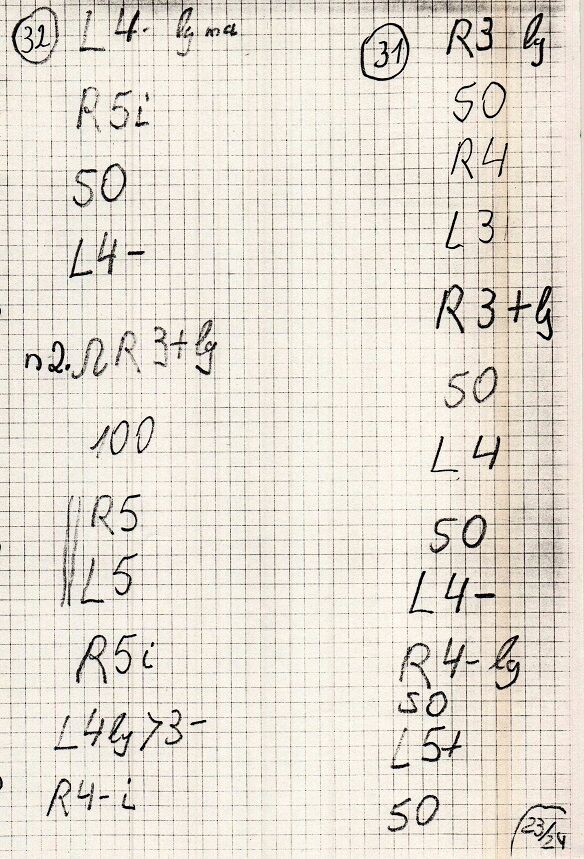 32 L4- lg ma
R5i
50
L4-
n2. ΩR3+lg
100
R5
L5
R5i
L4lg>3-
R4-i
31 R3 lg
50
R4
L3
R3+lg
50
L4
50
L4-
R4-lg
50
L5+
50
23/24